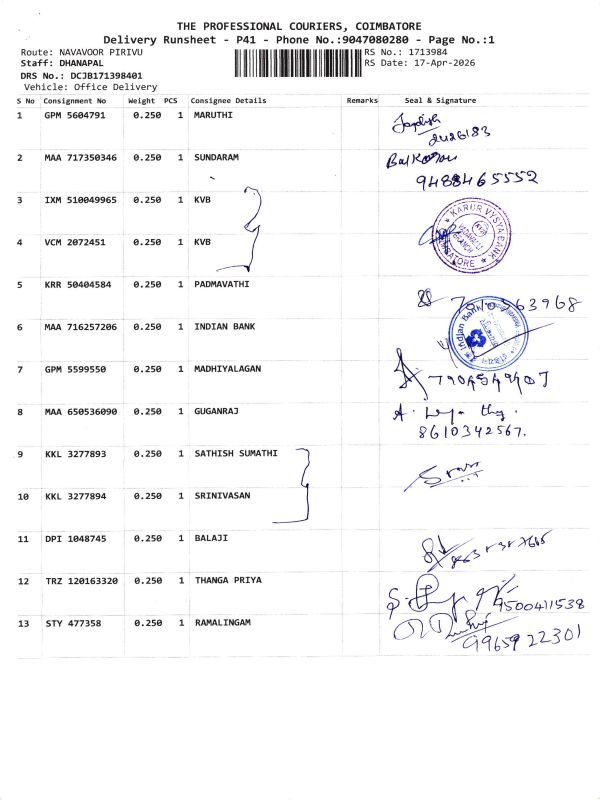 THE PROFESSIONAL COURIERS, COIMBATORE
Delivery Runsheet - P41 - Phone No.:9047080280 - Page No.:1
Route: NAVAVOOR PIRIVU RS No.: 1713984
Staff: DHANAPAL RS Date: 17-Apr-2026
DRS No.: DCJB171398401
Vehicle: Office Delivery
S No Consignment No Weight PCS Consignee Details Remarks Seal & Signature
1 GPM 5604791 0.250 1 MARUTHI
2 MAA 717350346 0.250 1 SUNDARAM
9488465552
3 IXM 510049965 0.250 1 KVB
KARUR VYSYA BANK
4 VCM 2072451 0.250 1 KVB
5 KRR 50404584 0.250 1 PADMAVATHI
6 MAA 716257206 0.250 1 INDIAN BANK
Indian Bank
7 GPM 5599550 0.250 1 MADHIYALAGAN
8 MAA 650536090 0.250 1 GUGANRAJ
8610342567.
9 KKL 3277893 0.250 1 SATHISH SUMATHI
10 KKL 3277894 0.250 1 SRINIVASAN
11 DPI 1048745 0.250 1 BALAJI
12 TRZ 120163320 0.250 1 THANGA PRIYA
9500411538
13 STY 477358 0.250 1 RAMALINGAM
9965922301